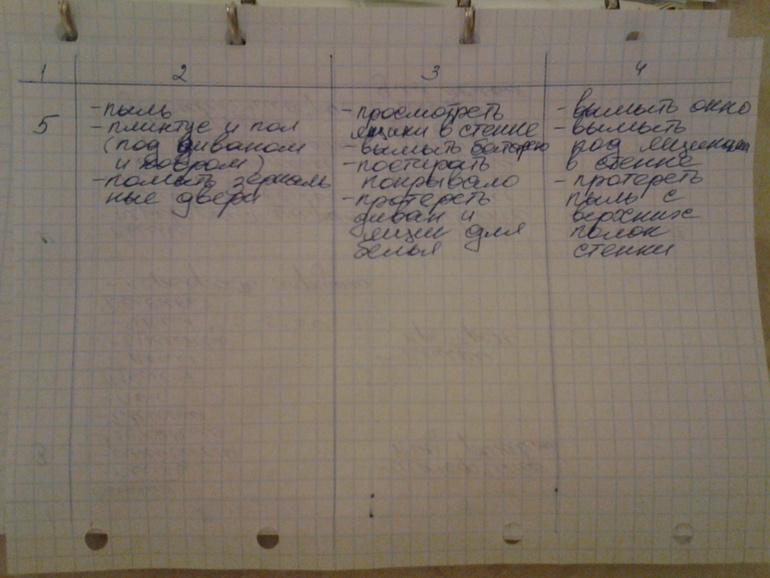 1 2 3 4
5
- пыль
- плинтус и пол
(под диваном
и ковром)
- помыть зеркаль
ные двери
- просмотреть
ящики в стенке
- вымыть батарею
- постирать
покрывало
- протереть
диван и
ящик для
белья
- вымыть окно
- вымыть
под ящиками
в стенке
- протереть
пыль с
верхних
полок
стенки